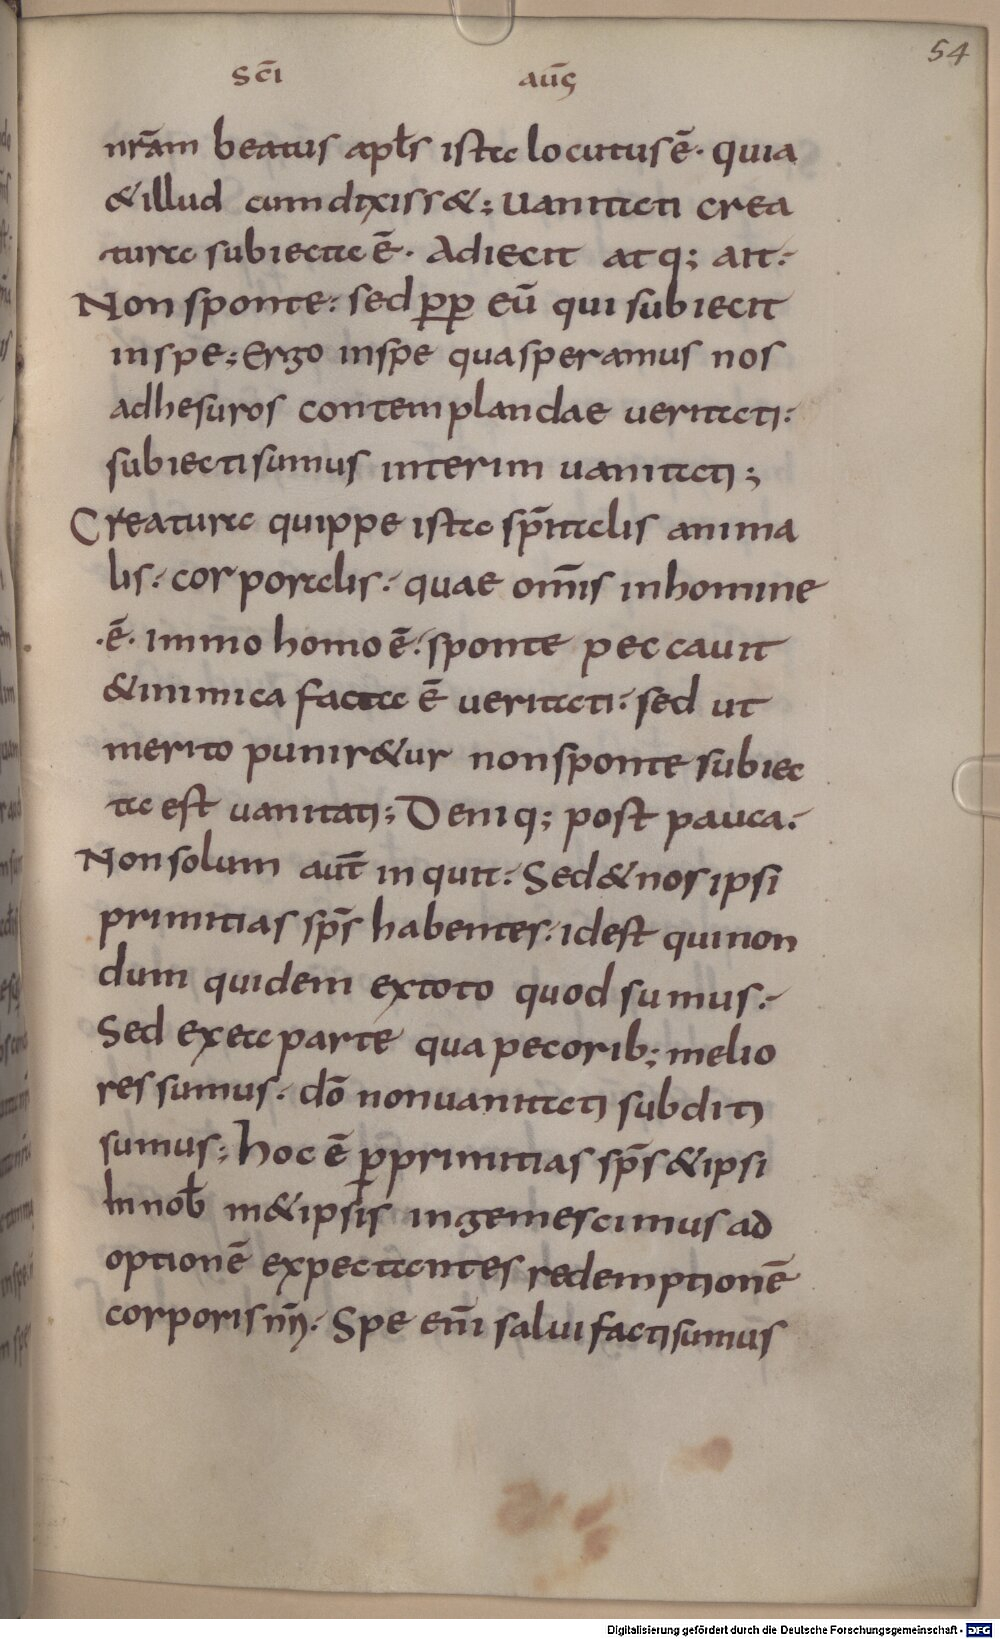 54
sc̄i auḡ
nr̄am beatus apƚs ista locutus ē· quia
& illud cum dixiss&; Uanitati crea
turae subiecta ē· Adiecit atq; ait:
Non sponte: sed p̱p̱ eū qui subiecit
in spe; Ergo in spe qua speramus nos
adhesuros contemplandae ueritati:
subiecti sumus interim uanitati;
Creatura quippe ista sp̄italis anima
lis: corporalis: quae om̄is in homine
·ē· immo homo ē: sponte peccauit
& inimica facta ē ueritati: sed ut
merito punir&ur non sponte subiec
ta est uanitati; Deniq; post pauca:
Non solum aut̄ inquit: Sed & nos ipsi
primitias sp̄s habentes: id est qui non
dum quidem ex toto quod sumus:
Sed ex ea parte qua pecorib; melio
res sumus: dō non uanitati subditi
sumus; hoc ē ꝑ primitias sp̄s & ipsi
In nob̄ m&ipsis ingemescimus ad
optionē expectantes redemptionē
corporis nr̄i: Spe eni̅ salui facti sumus
Digitalisierung gefördert durch die Deutsche Forschungsgemeinschaft - DFG